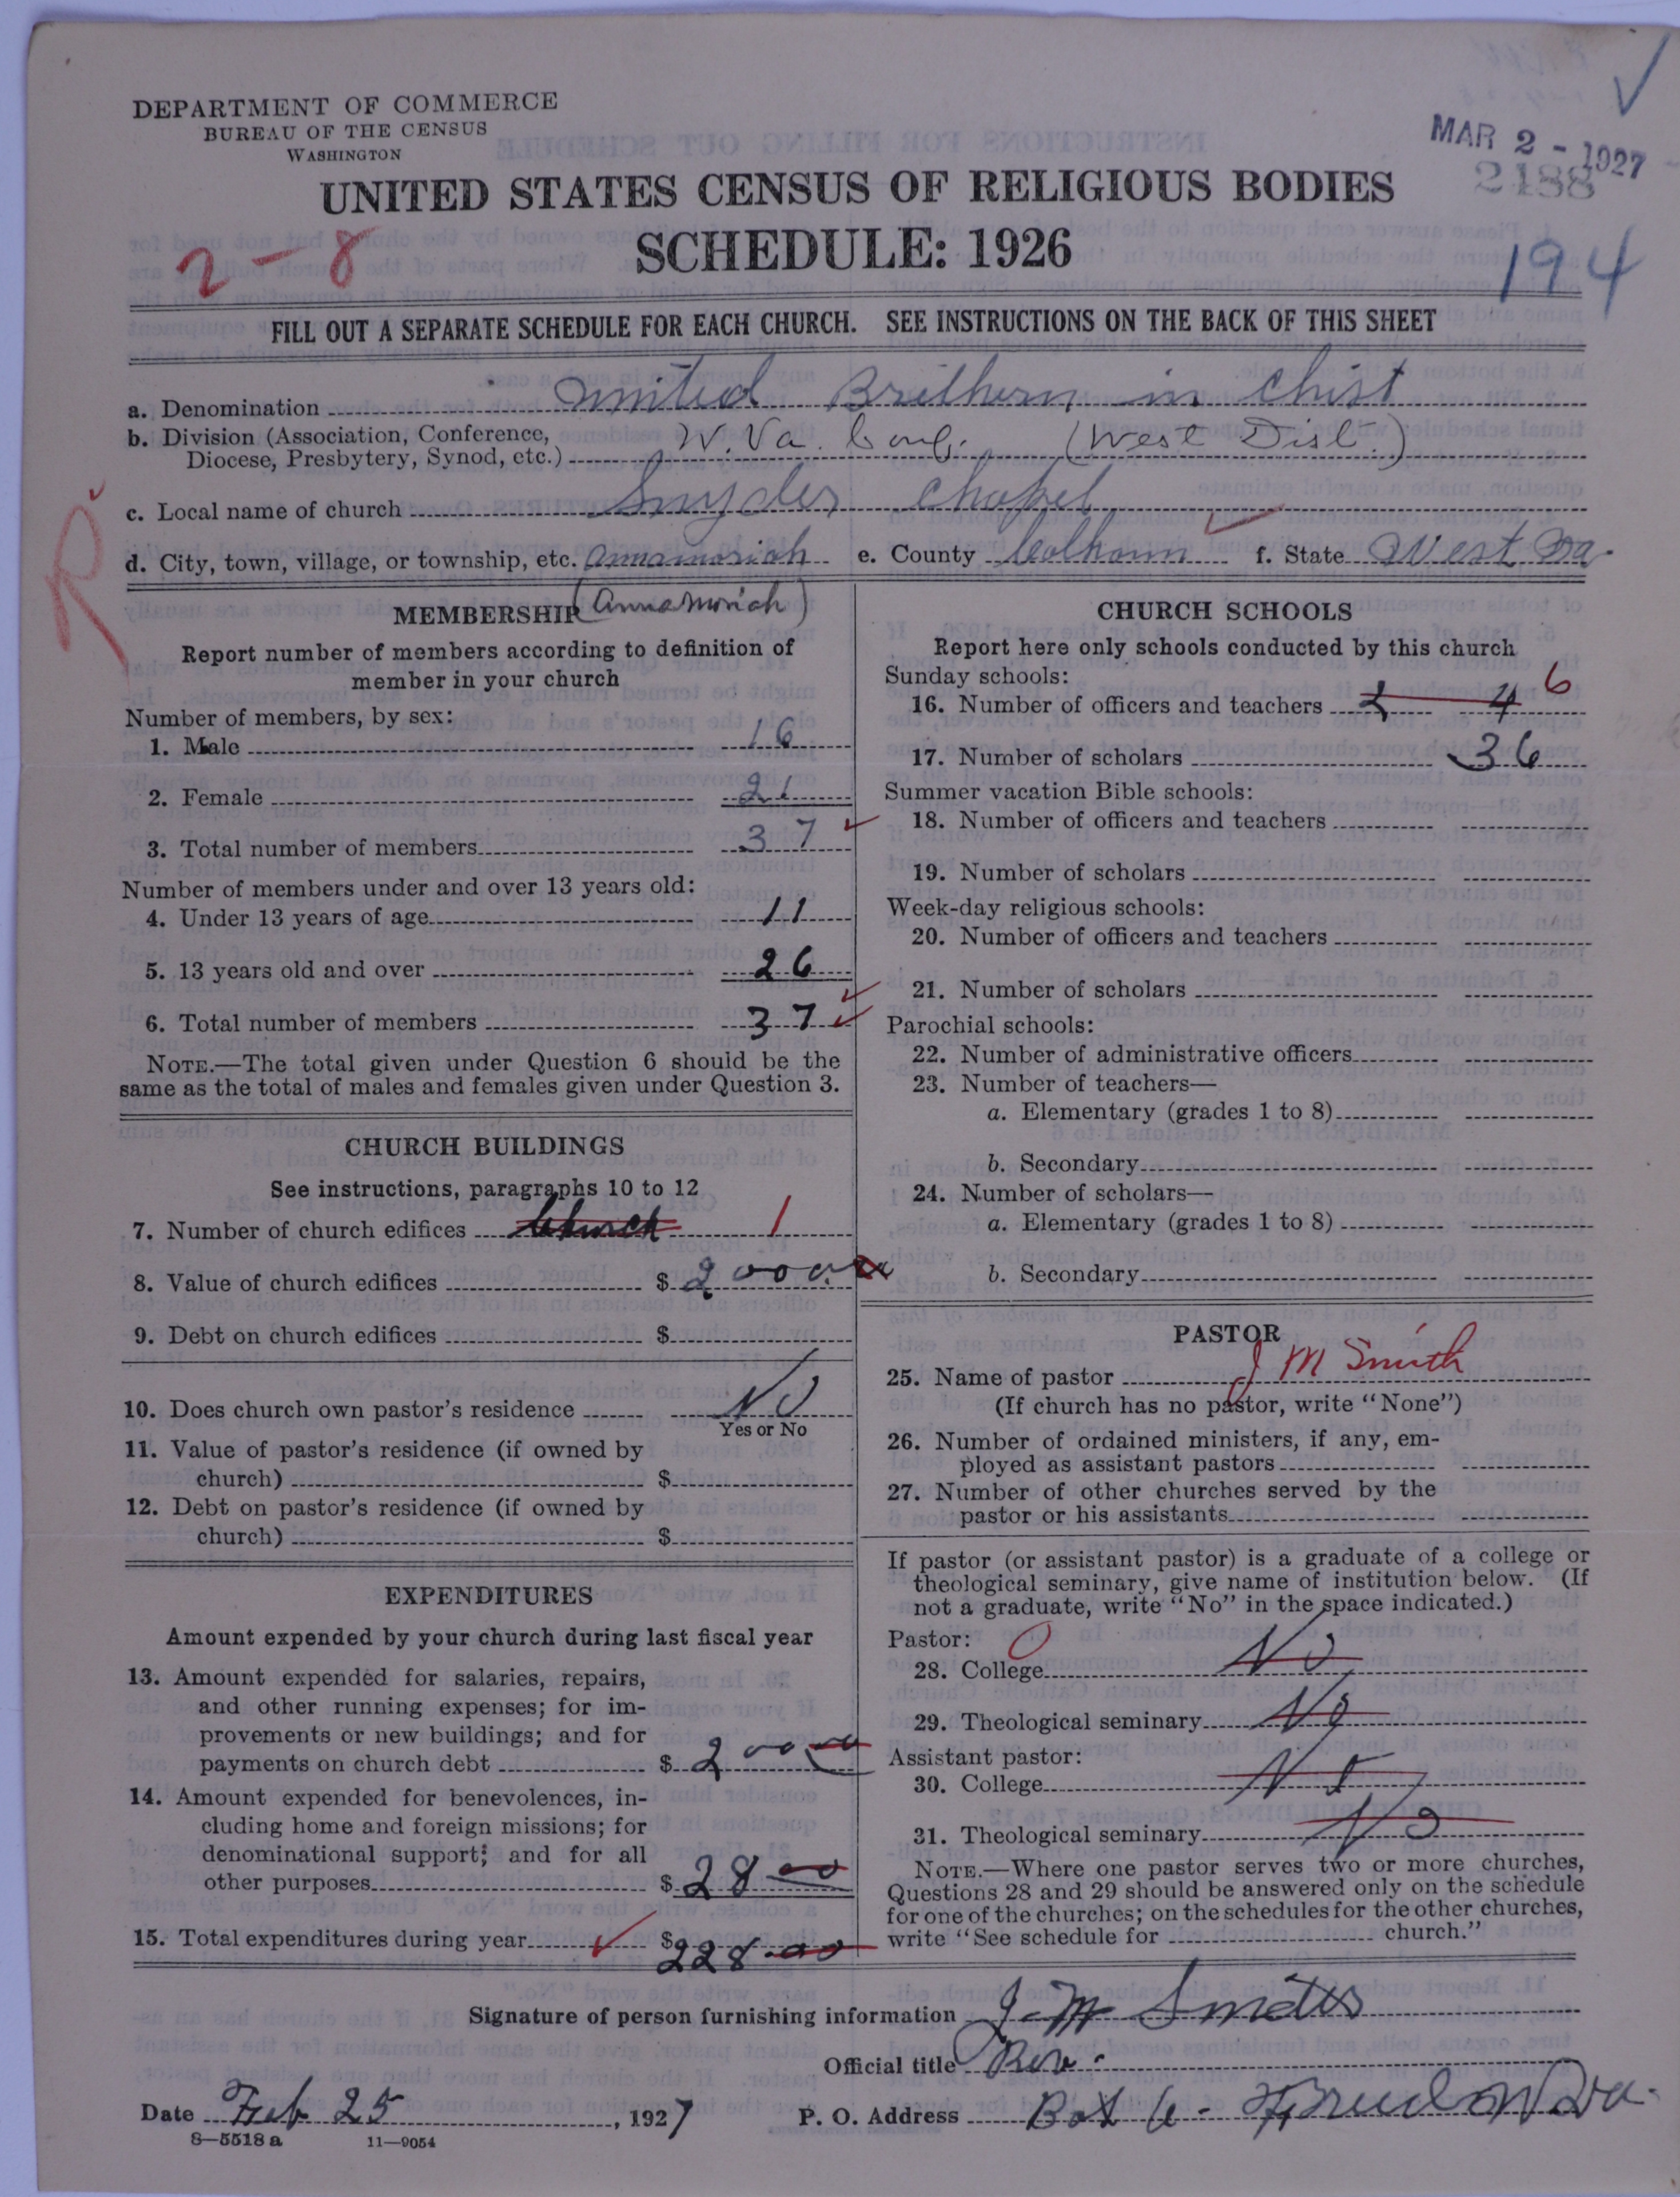 DEPARTMENT OF COMMERCE
BUREAU OF THE CENSUS
WASHINGTON
MAR 2 - 1927
2188
UNITED STATES CENSUS OF RELIGIOUS BODIES
SCHEDULE: 1926
2-8
194
FILL OUT A SEPARATE SCHEDULE FOR EACH CHURCH. SEE INSTRUCTIONS ON THE BACK OF THIS SHEET
a. Denomination United Brethern in Christ
b. Division (Association, Conference, W. Va. Conf. (West Dist.)
Diocese, Presbytery, Synod, etc.)
c. Local name of church Snyder Chapel
d. City, town, village, or township, etc. Annamoriah e. County Calhoun f. State West Va.
R
MEMBERSHIP (Annamoriah)
Report number of members according to definition of
member in your church
Number of members, by sex:
1. Male 16
2. Female 21
3. Total number of members 37
Number of members under and over 13 years old:
4. Under 13 years of age 11
5. 13 years old and over 26
6. Total number of members 37
NOTE.—The total given under Question 6 should be the
same as the total of males and females given under Question 3.
CHURCH BUILDINGS
See instructions, paragraphs 10 to 12
7. Number of church edifices Church 1
8. Value of church edifices $ 2000.00
9. Debt on church edifices $
10. Does church own pastor's residence No
Yes or No
11. Value of pastor's residence (if owned by
church) $
12. Debt on pastor's residence (if owned by
church) $
EXPENDITURES
Amount expended by your church during last fiscal year
13. Amount expended for salaries, repairs,
and other running expenses; for im-
provements or new buildings; and for
payments on church debt $ 200 00
14. Amount expended for benevolences, in-
cluding home and foreign missions; for
denominational support; and for all
other purposes $ 28 00
15. Total expenditures during year $ 228.00
CHURCH SCHOOLS
Report here only schools conducted by this church
Sunday schools:
16. Number of officers and teachers 2 4 6
17. Number of scholars 36
Summer vacation Bible schools:
18. Number of officers and teachers
19. Number of scholars
Week-day religious schools:
20. Number of officers and teachers
21. Number of scholars
Parochial schools:
22. Number of administrative officers
23. Number of teachers—
a. Elementary (grades 1 to 8)
b. Secondary
24. Number of scholars—
a. Elementary (grades 1 to 8)
b. Secondary
PASTOR
25. Name of pastor J M Smith
(If church has no pastor, write "None")
26. Number of ordained ministers, if any, em-
ployed as assistant pastors
27. Number of other churches served by the
pastor or his assistants
If pastor (or assistant pastor) is a graduate of a college or
theological seminary, give name of institution below. (If
not a graduate, write "No" in the space indicated.)
Pastor: 0
28. College No
29. Theological seminary No
Assistant pastor:
30. College No
31. Theological seminary No
NOTE.—Where one pastor serves two or more churches,
Questions 28 and 29 should be answered only on the schedule
for one of the churches; on the schedules for the other churches,
write "See schedule for church."
Signature of person furnishing information J. M. Smith
Official title Rev.
Date Feb 25, 1927 P. O. Address Box 6 - W Va.
8—5518 a 11—9054